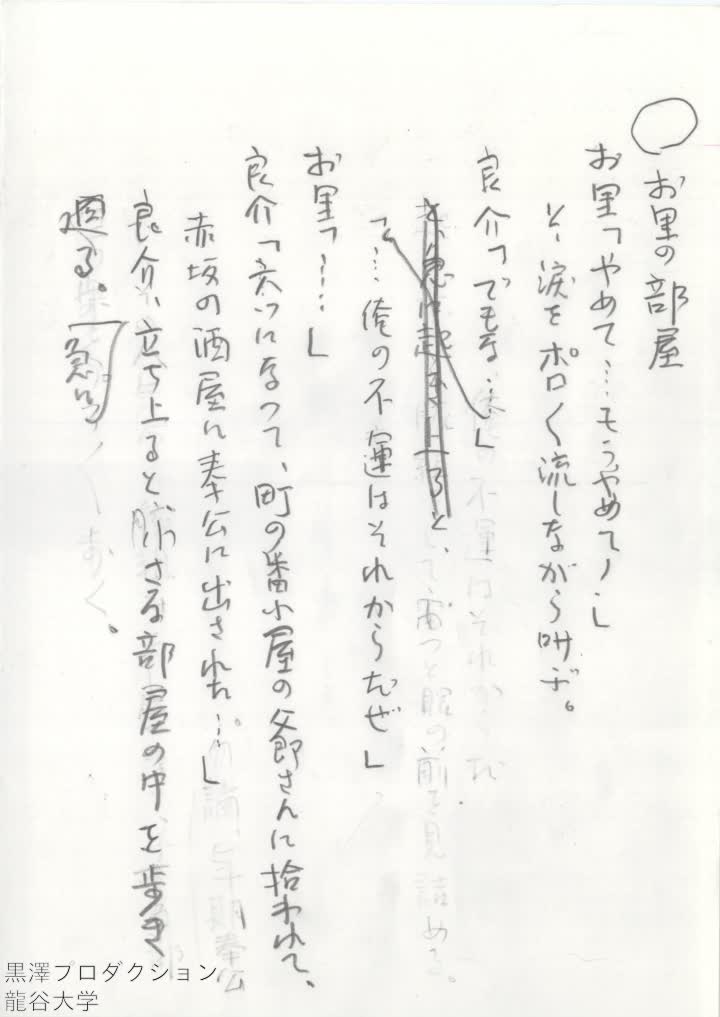 お里の部屋
お里「やめて……もうやめて！」
と、涙をポロく流しながら叫ぶ。
良介「でもな……」
急に起き上ると、
「……俺の不運はそれからだぜ」
お里「……」
良介「六つになって、町の番小屋の父郎さんに拾われて、
赤坂の酒屋に奉公に出された……」
良介、立ち上ると小さな部屋の中を歩き
廻る。
急に
黒澤プロダクション
龍谷大学